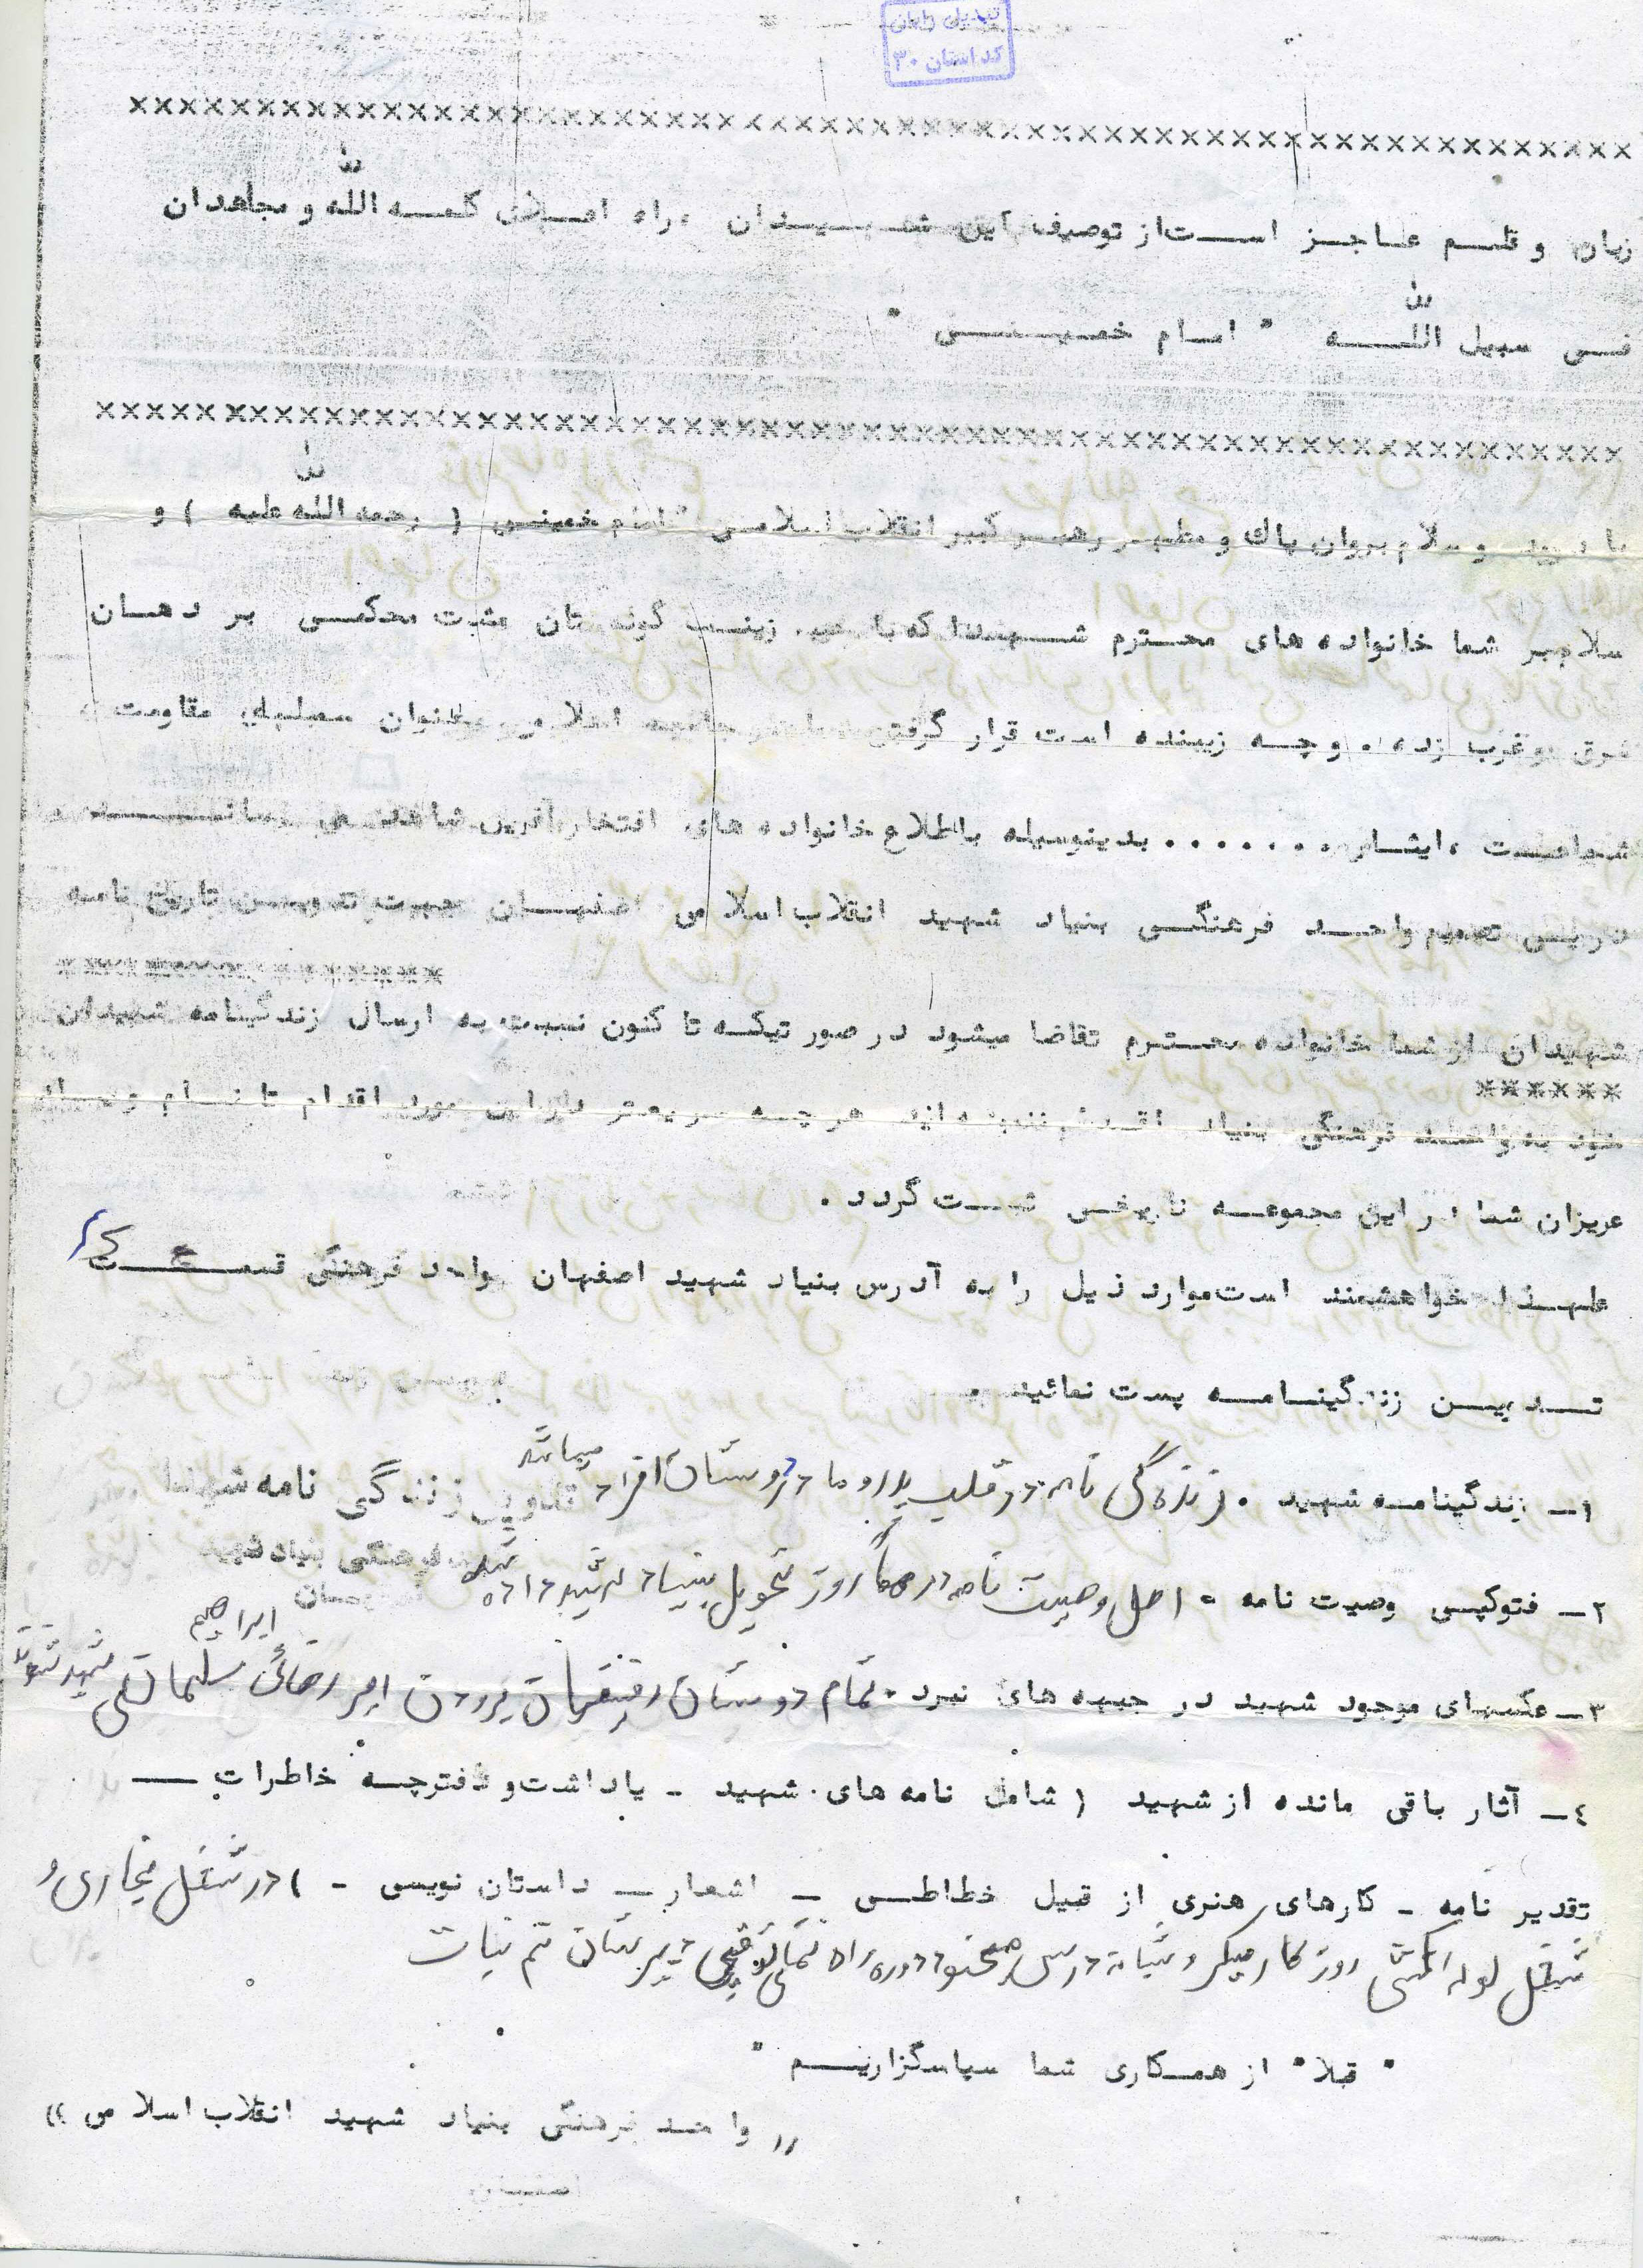 تبدیل رایانه
کد استان ۳۰
××××××××××××××××××××××××××××××××××××××××××××××××××××××××××××
زبان و قلم عاجز است از توصیف این شهیدان ، راه اعلای کلمه الله و مجاهدان
فی سبیل الله " امام خمینی "
××××××××××××××××××××××××××××××××××××××××××××××××××××××××××××
با درود و سلام بروان پاك و مطهر رهبر کبیر انقلاب اسلامی امام خمینی ( رحمه الله علیه ) و
سلام بر شما خانواده های محترم شهدا که با زینب گونه تان مشت محکمی بر دهان
شرق و غرب زده . وچه زیبنده است قرار گرفتن شما در جامعه اسلامی بعنوان سمبلهای مقاومت ،
شجاعت ، ایثار . . . . . . . بدینوسیله باطلاع خانواده های افتخارآفرین شاهد می رساند
تصمیم واحد فرهنگی بنیاد شهید انقلاب اسلامی اصفهان جهت تدوین تاریخ نامه
شهیدان از شما خانواده محترم تقاضا میشود در صورتیکه تا کنون نسبت به ارسال زندگینامه شهیدان
خود به واحد فرهنگی بنیاد اقدام ننموده اید هر چه سریعتر در این مورد اقدام تا نام و
عزیزان شما در این مجموعه تاریخی ثبت گردد .
علیهذا خواهشمند است موارد ذیل را به آدرس بنیاد شهید اصفهان واحد فرهنگی قسمت
تدوین زندگینامه پست نمائید .
۱ـ زندگینامه شهید . زندگی نامه در قلب پدر و ما در دوستان افراد میباشد تدوین زندگی نامه شهدا
فرهنگی بنیاد شهید
۲ـ فتوکپی وصیت نامه . اصل وصیت نامه در همان روز تحویل بنیاد شهید داده شده
ابراهیم
۳ـ عکسهای موجود شهید در جبهه های نبرد . تمام دوستان رفیقهان امیر رضائی سلیمان شهید شدند
٤ـ آثار باقی مانده از شهید ( شامل نامه های شهید ـ یاداشت و دفترچه خاطرات ــ
تقدیر نامه ـ کارهای هنری از قبیل خطاطی ــ اشعار ــ داستان نویسی ـ ) در شغل نجاری و
شغل لوله کشی روز کار میکرد شبانه درس میخواند دوره راهنمائی دبیرستان
" قبلا" از همکاری شما سپاسگزاریم "
(( واحد فرهنگی بنیاد شهید انقلاب اسلامی ))
اصفهان